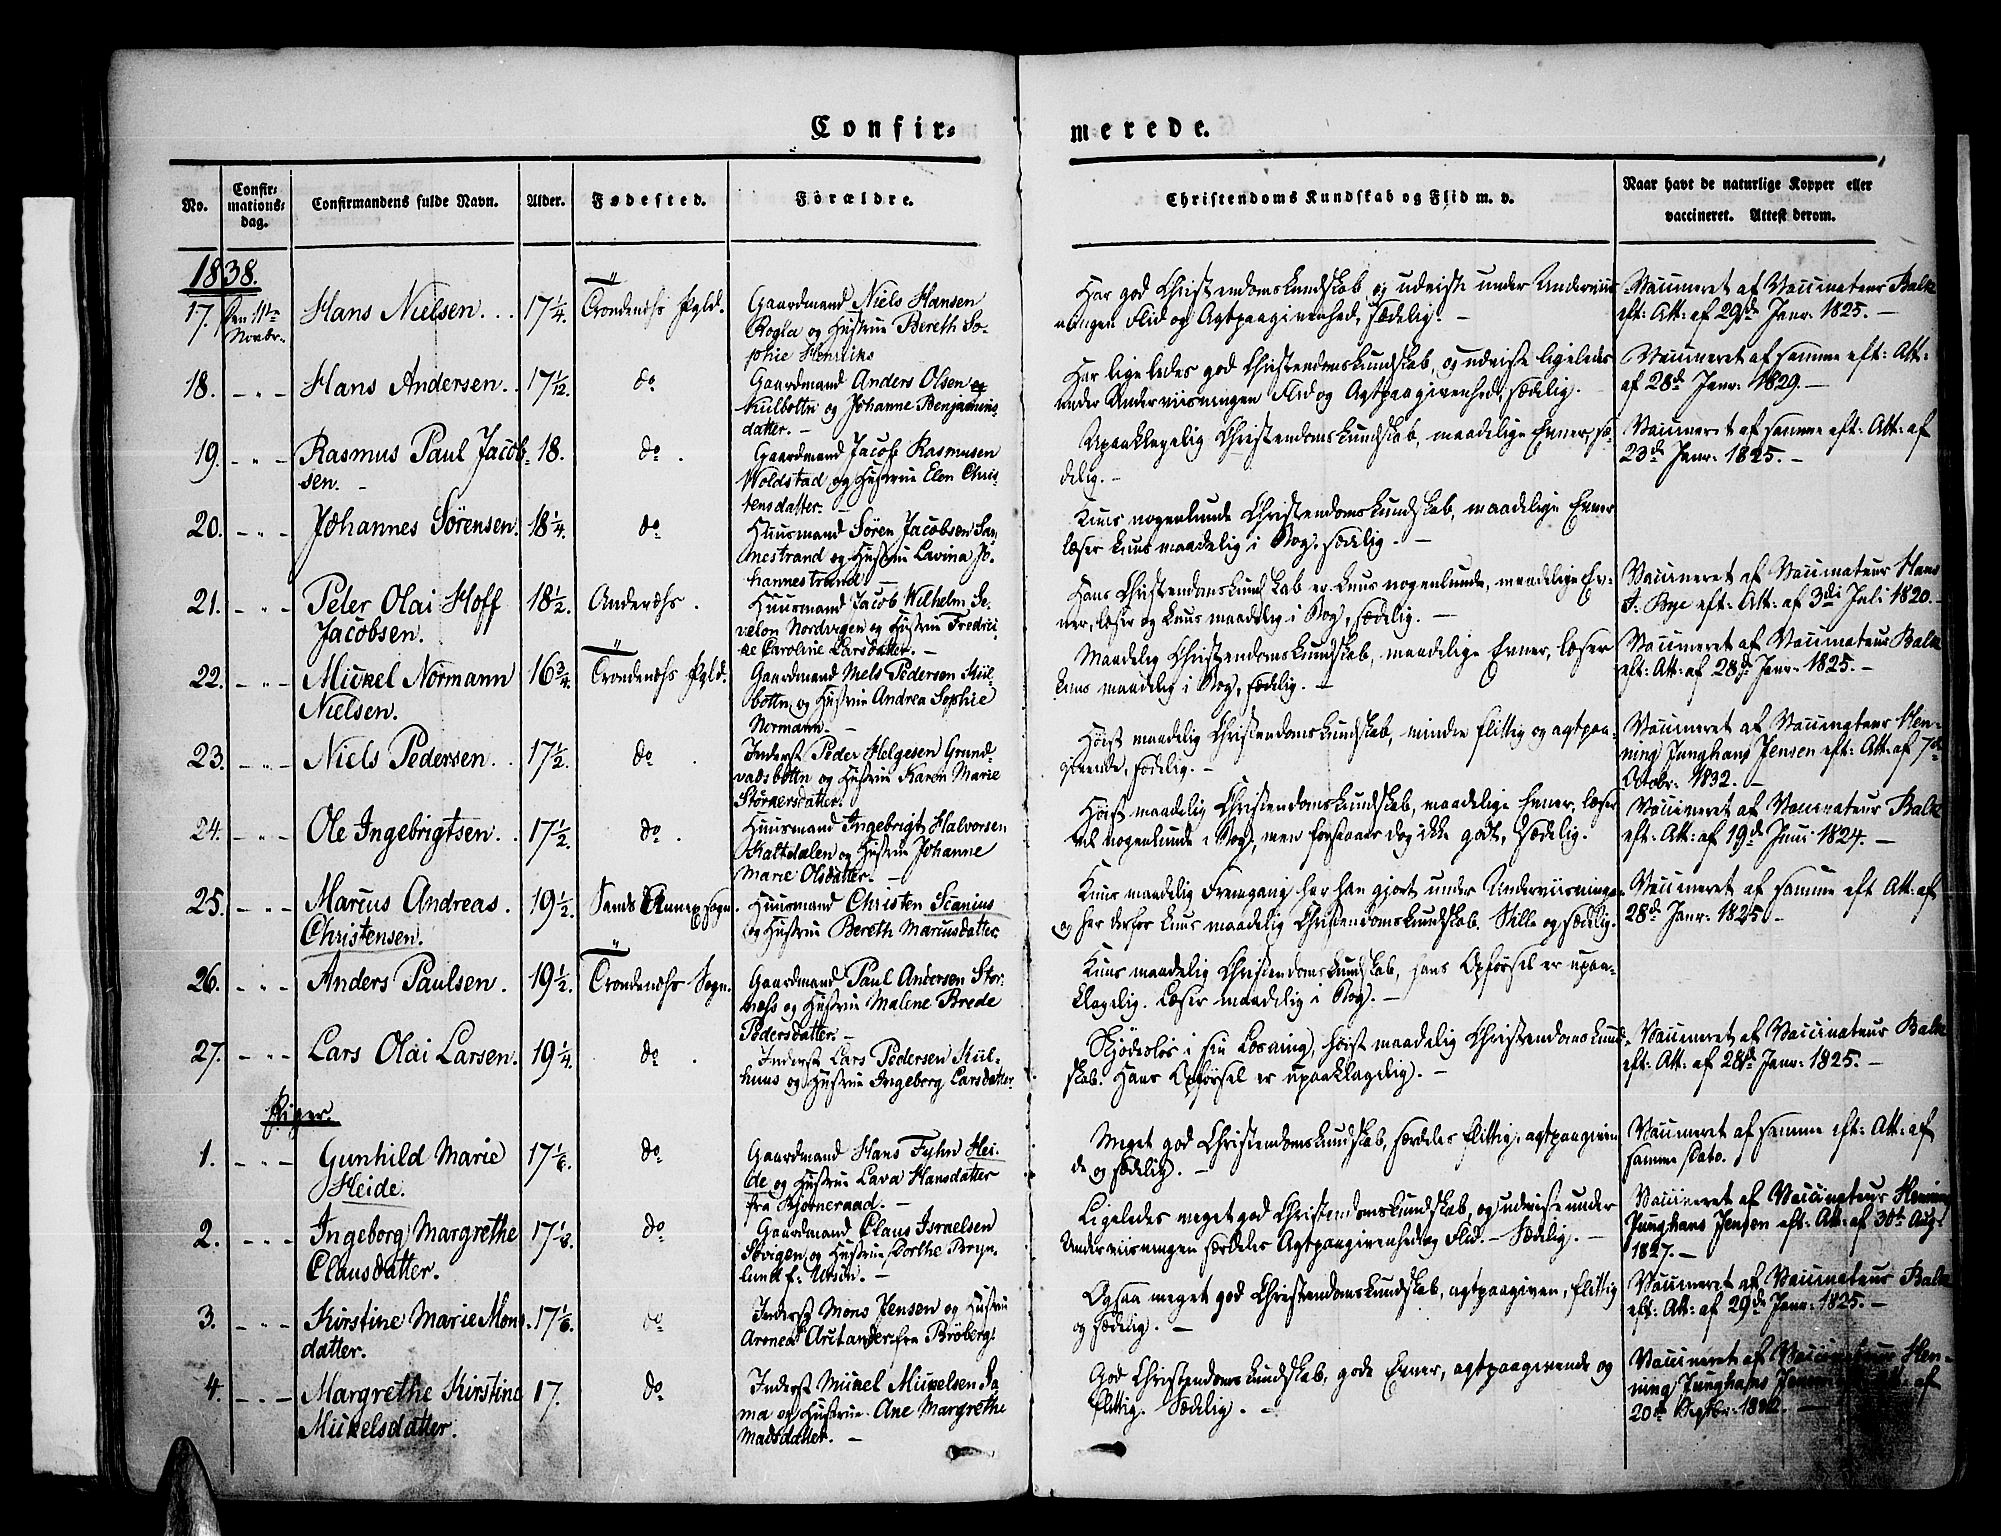 Confir=
merede.
No.
Confir=
mations=
dag.
Confirmandens fulde Navn.
Alder.
Fødested.
Forældre.
Christendoms Kundskab og Flid m. v.
Naar havt de naturlige Kopper eller
vaccineret. Attest derom.
1838.
17.
Den 11te
Novbr.
Hans Nielsen.
17 1/4.
Trondenæs Pgld.
Gaardmand Niels Hansen
Rogla og Hustrue Bereth So-
phie Henriks
Har god Christendomskundskab og udviste under Underviis-
ningen Flid og Agtpaagivenhed, sædelig. —
Vaccineret af Vaccinateur Balke
eft: Att: af 29de Janr: 1825. —
18.
Hans Andersen.
17 1/2.
do
Gaardmand Anders Olsen
Kulbotn og Johanne Benjamins-
datter. —
Har ligeledes god Christendomskundskab, og udviste ligeledes
under Underviisningen Flid og Agtpaagivenhed, sædelig.
Vaccineret af samme eft: Att:
af 28de Janr: 1829. —
19.
Rasmus Paul Jacob-
sen. —
18.
do
Gaardmand Jacob Rasmusen
Woldstad og Hustrue Elen Chris-
tensdatter. —
Upaaklagelig Christendomskundskab, maadelige Evner, sæ-
delig. —
Vaccineret af samme eft: Att: af
23de Janr: 1825. —
20.
Johannes Sørensen.
18 1/4.
do
Huusmand Søren Jacobsen Sa-
mestrand og Hustrue Lavina Jo-
hannestrand
Kuns nogenlunde Christendomskundskab, maadelige Evner
læser kuns maadelig i Bog. sædelig. —
21.
Peter Olai Hoff
Jacobsen.
18 1/2.
Andenæs.
Huusmand Jacob Wilhelm Se-
velon Nordvigen og Hustrue Fredri-
ke Caroline Larsdatter. —
Hans Christendomskundskab er kuns nogenlunde, maadelige Ev-
ner, læser og kuns maadelig i Bog, sædelig. —
Vaccineret af Vaccinateur Hans
J. Bye eft: Att: af 3die Juli 1820. —
22.
Mickel Normann
Nielsen.
16 3/4.
Trondenæs Pgld.
Gaardmand Niels Pedersen Kul-
botn, og Hustrue Andrea Sophie
Normann. —
Maadelig Christendomskundskab, maadelige Evner, læser
kuns maadelig i Bog, sædelig. —
Vaccineret af Vaccinateur Balke
eft: Att: af 28de Janr: 1825. —
23.
Niels Pedersen.
17 1/2.
do
Inderst Peder Helgesen Grund-
vadsbotn og Hustrue Karen Marie
Størkersdatter.
Høist maadelig Christendomskundskab, mindre flittig og agtpaa-
givende, sædelig. —
Vaccineret af Vaccinateur Hen-
ning Junghans Jensen eft: Att: af 7de
Octobr: 1832. —
24.
Ole Ingebrigtsen.
17 1/2.
do
Huusmand Ingebrigt Halvorsen
Kaltdalen og Hustrue Johanne
Marie Olsdatter. —
Høist maadelig Christendomskundskab, maadelige Evner, læser
vel nogenlunde i Bog, men forstaaer dog ikke godt, sædelig.
Vaccineret af Vaccinateur Balke
eft: Att: af 19de Juni 1824. —
25.
Marcus Andreas
Christensen.
19 1/2.
Sands Annexsogn.
Huusmand Christen Scanius
og Hustrue Bereth Marcusdatter.
Kuns maadelig Fremgang har han gjort under Underviisningen
og har derfor kuns maadelig Christendomskundskab. Stille og sædelig.
Vaccineret af samme eft Att: af
28de Janr: 1825 —
26.
Anders Paulsen.
19 1/2.
Trondenæs Sogn.
Gaardmand Paul Andersen Stor-
næss og Hustrue Malene Brede
Pedersdatter. —
Kuns maadelig Christendomskundskab, hans Opførsel er upaa-
klagelig. Læser maadelig i Bog. —
27.
Lars Olai Larsen.
19 1/4.
do
Inderst Lars Pedersen Kul-
huus og Hustrue Ingeborg Larsdatter.
Skjødesløs i sin Læsning, høist maadelig Christendomskund-
skab. Hans Opførsel er upaaklagelig. —
Vaccineret af Vaccinateur Balke
eft: Att: af 28de Janr: 1825. —
Piger.
1.
Gunhild Marie
Heide.
17 1/6.
do
Gaardmand Hans Fyhn Hei-
de og Hustrue Lava Hansdatter
fra Kjøtneraad. —
Meget god Christendomskundskab, særdeles flittig, agtpaagiven-
de og sædelig. —
Vaccineret af samme eft: Att: af
samme Dato.
2.
Ingeborg Margrethe
Clausdatter.
17 1/8.
do
Gaardmand Claus Israelsen
Søvigen, og Hustrue Dorthe Bryn-
lund f: Ursin. —
Ligeledes meget god Christendomskundskab, og udviste under
Underviisningen særdeles Agtpaagivenhed og Flid. — Sædelig. —
Vaccineret af Vaccinateur Henning
Junghans Jensen eft: Att: af 30te Aug:
1827. —
3.
Kirstine Marie Mons-
datter.
17 1/6.
do
Inderst Mons Jensen og Hustrue
Arnea Arctander fra Brøberg.
Ogsaa meget god Christendomskundskab, agtpaagiven, flittig
og sædelig. —
Vaccineret af Vaccinateur Balke
eft: Att: af 29de Janr: 1825. —
4.
Margrethe Kirstine
Mickelsdatter.
17.
do
Inderst Mickel Mickelsen Sa-
ma og Hustrue Ane Margrethe
Madsdatter. —
God Christendomskundskab, gode Evner, agtpaagivende og
flittig. Sædelig. —
Vaccineret af Vaccinateur Hen-
ning Junghans Jensen eft: Att: af
20de Septbr: 1832. —